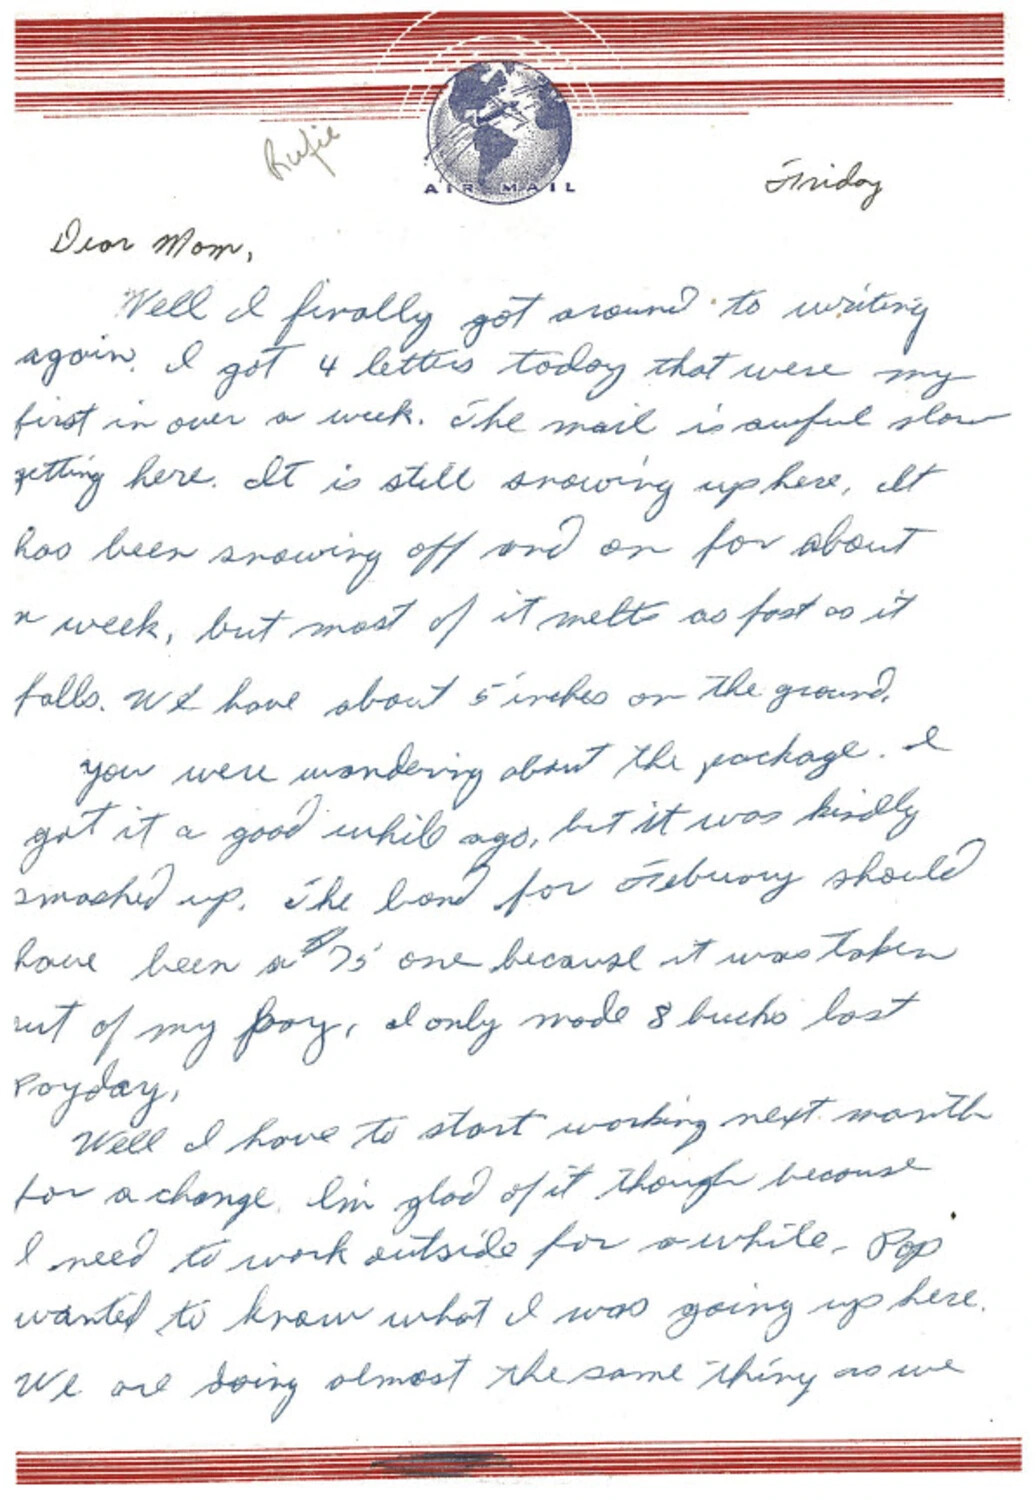 Rufie
AIR MAIL
Friday
Dear Mom,
Well I finally got around to writing
again. I got 4 letters today that were my
first in over a week. The mail is awful slow
getting here. It is still snowing up here, It
has been snowing off and on for about
a week, but most of it melts as fast as it
falls. We have about 5 inches on the ground.
You were wondering about the package. I
got it a good while ago, but it was kindly
smashed up. The bond for Febuary should
have been a $75 one because it was taken
out of my pay, I only made 8 bucks last
Payday,
Well I have to start working next month
for a change. I'm glad of it though because
I need to work outside for a while. Pop
wanted to know what I was going up here.
We are doing almost the same thing as we